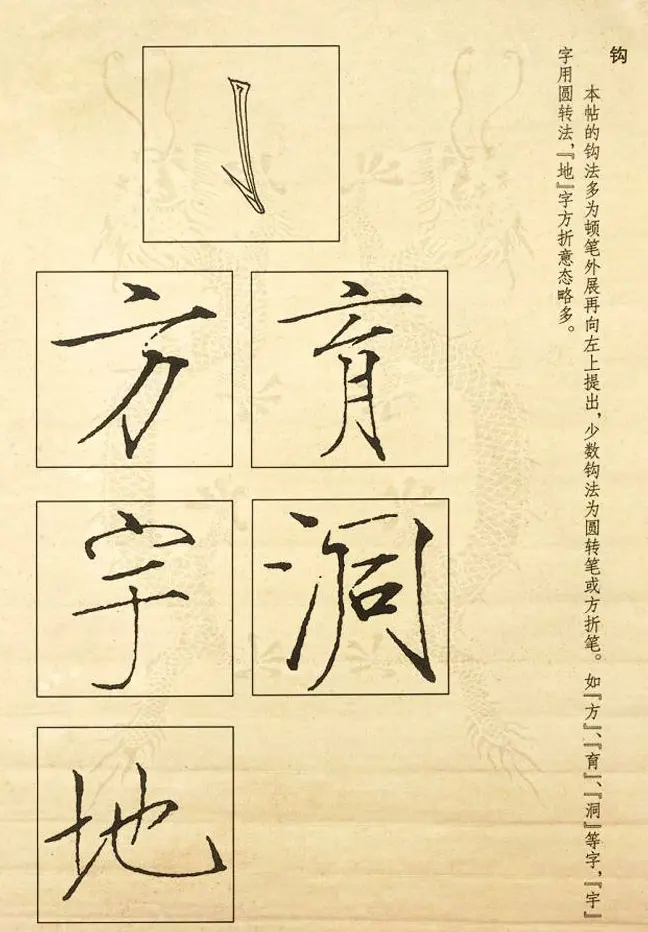 钩
本帖的钩法多为顿笔外展再向左上提出，少数钩法为圆转笔或方折笔。如『方』、『育』、『洞』等字，『宇』
字用圆转法，『地』字方折意态略多。
方
育
宇
洞
地